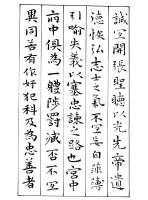 誠宜開張聖聽以光先帝遺
德恢弘志士之氣不宜妄自菲薄
引喻失義以塞忠諫之路也宮中
府中俱為一體陟罰臧否不宜
異同若有作奸犯科及為忠善者